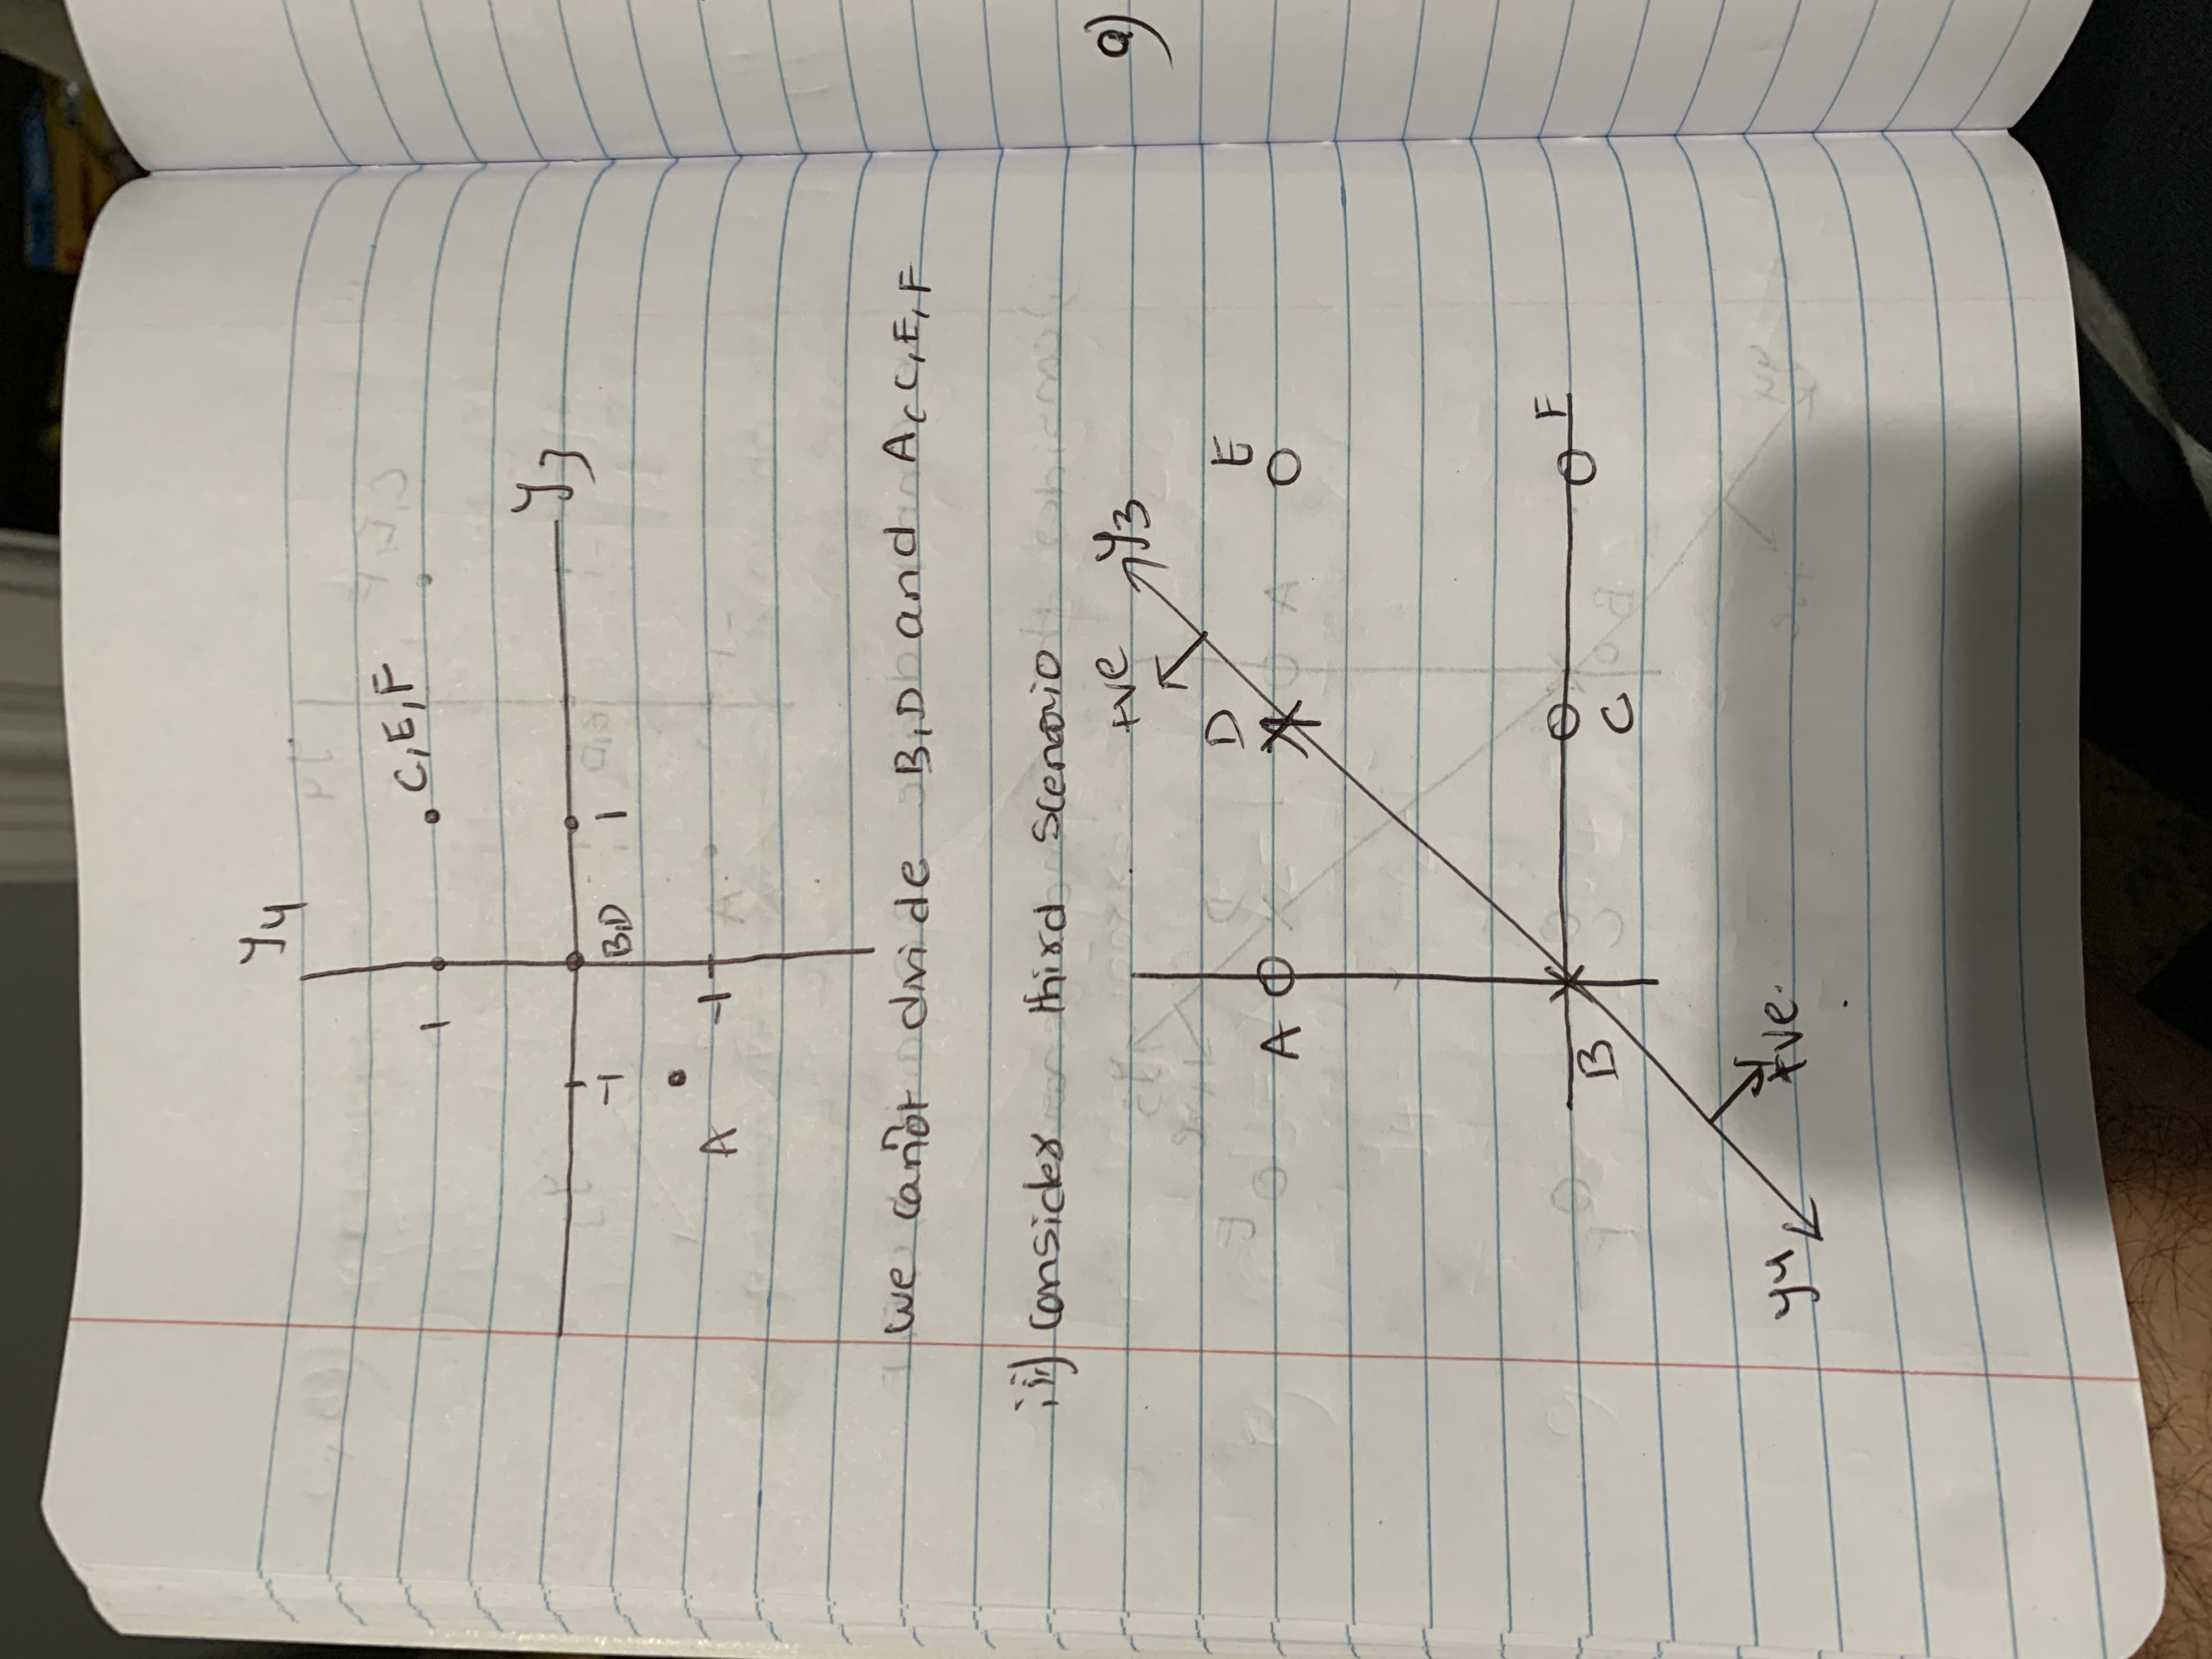 y4
C,E,F
1
y3
-1
B,D
1
A
-1
we cannot divide B,D and A,C,E,F
iii) consider third scenario
+ve
y3
D
E
A
a)
F
B
C
y4
+ve.